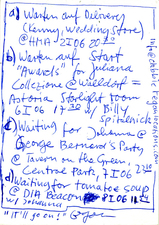 a) Warten auf Delivery
(Kenny, Wedding Store)
@ HHA - 2I06 20
b) Warten auf Start
"Awards" for Juliana
Collezione @ Walldorf =
Astoria Starlight room
6I06 17 30 w/ Billy
Spitalnick
c) Waiting for Johanna @
George Bernard's Party
@ Tavern on the Green,
Central Park, 7I06 23
d) Waiting for tomatoe soup
@ DIA Beacon 8I06
w/ Johanna
"It'll go on!"